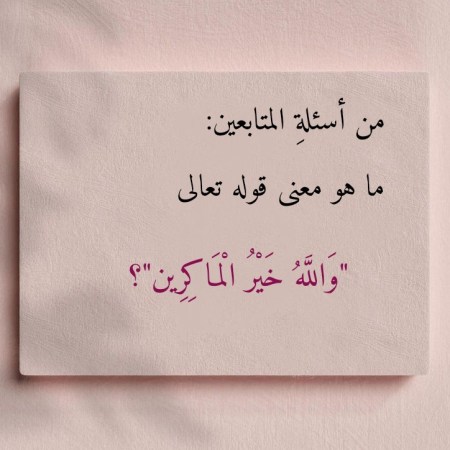 من أسئلةِ المتابعين:
ما هو معنى قوله تعالى
"وَاللَّهُ خَيْرُ الْمَاكِرِين"؟